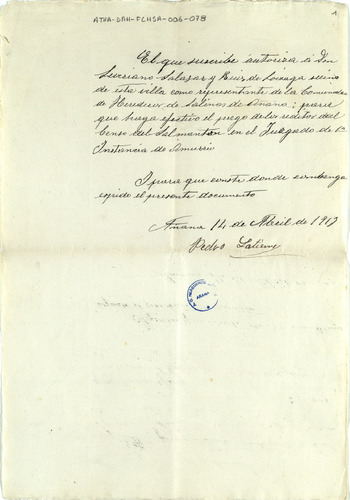 ATHA-DAH-FCHSA-006-078
1
El que suscribe autoriza á Don
Luciano Salazar y Ruiz de Loizaga vecino
de esta villa como representante de la Comunidad
de Herederos de Salinas de Añana; para
que haga efectivo el pago de los reditos del
Censo del Salmanton en el Juzgado de 1ª
Instancia de Amurrio
I para que conste donde convenga
expide el presente documento
Añana 14 de Abril de 1917
Pedro
ARABA